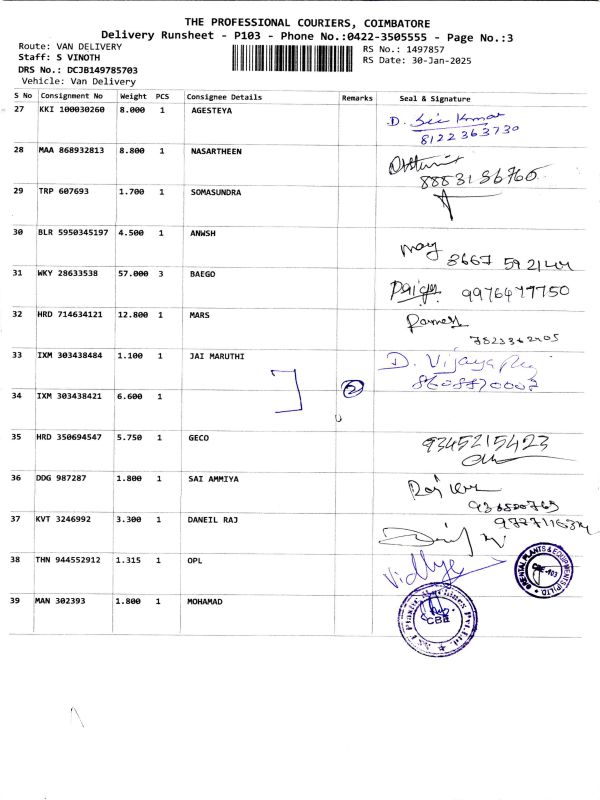 THE PROFESSIONAL COURIERS, COIMBATORE
Delivery Runsheet - P103 - Phone No.:0422-3505555 - Page No.:3
Route: VAN DELIVERY RS No.: 1497857
Staff: S VINOTH RS Date: 30-Jan-2025
DRS No.: DCJB149785703
Vehicle: Van Delivery
S No Consignment No Weight PCS Consignee Details Remarks Seal & Signature
27 KKI 100030260 8.000 1 AGESTEYA D.
8122363730
28 MAA 868932813 8.800 1 NASARTHEEN
8883156760
29 TRP 607693 1.700 1 SOMASUNDRA
30 BLR 5950345197 4.500 1 ANWSH
31 WKY 28633538 57.000 3 BAEGO 9976477750
32 HRD 714634121 12.800 1 MARS
33 IXM 303438484 1.100 1 JAI MARUTHI D. Vijaya
2 8608870007
34 IXM 303438421 6.600 1
35 HRD 350694547 5.750 1 GECO 9345215423
36 DDG 987287 1.800 1 SAI AMMIYA
37 KVT 3246992 3.300 1 DANEIL RAJ
38 THN 944552912 1.315 1 OPL Vidhye
ORIENTAL PLANTS & EQUIPMENTS P LTD.
CBE-103
39 MAN 302393 1.800 1 MOHAMAD
CBE